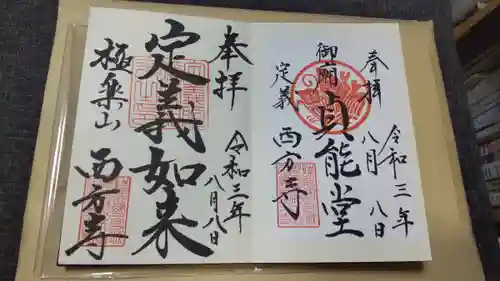 奉拝
八月八日
令和三年
御廟
貞能堂
定義
西方寺
奉拝
令和三年
八月八日
定義如来
極楽山
西方寺